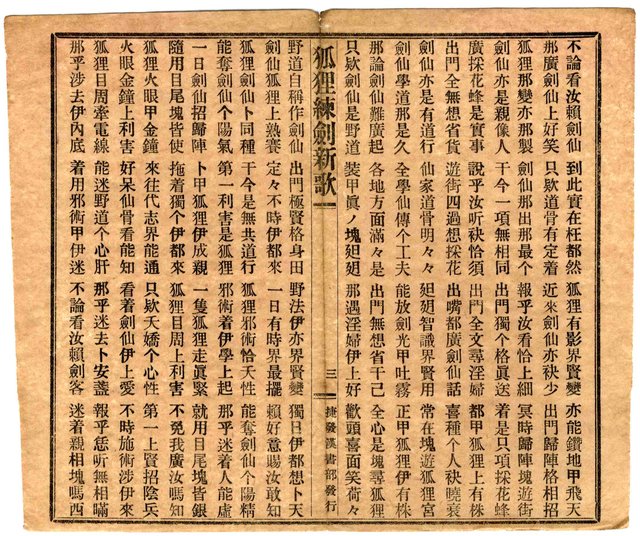 不論看汝賴劍仙 到此實在枉都然 狐狸有影界賢變 亦能鑽地甲飛天
那廣劍仙上好笑 只欵道骨有定着 近來劍仙亦袂少 出門歸陣格相招
狐狸那變亦那製 劍仙那出那最个 報乎汝看恰上細 冥時歸陣塊遊街
劍仙亦是親像人 干今一項無相同 出門獨个格眞送 着是只項採花蜂
廣採花蜂是實事 說乎汝听袂恰須 出門全文尋淫婦 都甲狐狸上有株
出門全無想省貨 遊街四過想採花 出嘴都廣劍仙話 喜種个人袂曉衰
劍仙亦是有道行 仙家道骨明々々 廸廸智識界賢用 常在塊遊狐狸宮
劍仙學道那是久 全學仙傳个工夫 能放劍光甲吐霧 正甲狐狸伊有株
那論劍仙難廣起 各地方面滿々是 出門無想省干己 全心是塊尋狐狸
只欵劍仙是野道 裝甲眞ノ塊廸廸 那遇淫婦伊上好 歡頭喜面笑荷々
狐狸練劍新歌 三 捷發漢書部發行
野道自稱作劍仙 出門極賢格身田 野法伊亦界賢變 獨日伊都想卜天
劍仙狐狸上熟賽 定々不時伊都來 一日有時界最擺 賴好意賜汝敢知
狐狸劍仙卜同種 干今是無共道行 狐狸邪術恰天性 能奪劍仙个陽精
能奪劍仙个陽氣 第一利害是狐狸 邪術着伊學上起 那乎迷着人能虛
一日劍仙招歸陣 卜甲狐狸伊成親 一隻狐狸走眞緊 就用目尾塊皆銀
隨用目尾塊皆使 拖着獨个伊都來 狐狸目周上利害 不免我廣汝嗎知
狐狸火眼甲金鐘 來往代志界能通 只欵夭嬌个心性 第一上賢招陰兵
火眼金鐘上利害 好呆仙骨看能知 看着劍仙伊上愛 不時施術涉伊來
狐狸目周牽電線 能迷野道个心肝 那乎迷去卜安盞 報乎恁听無相瞞
那乎涉去伊內底 着用邪術甲伊迷 不論看汝賴劍客 迷着親相塊嗎西